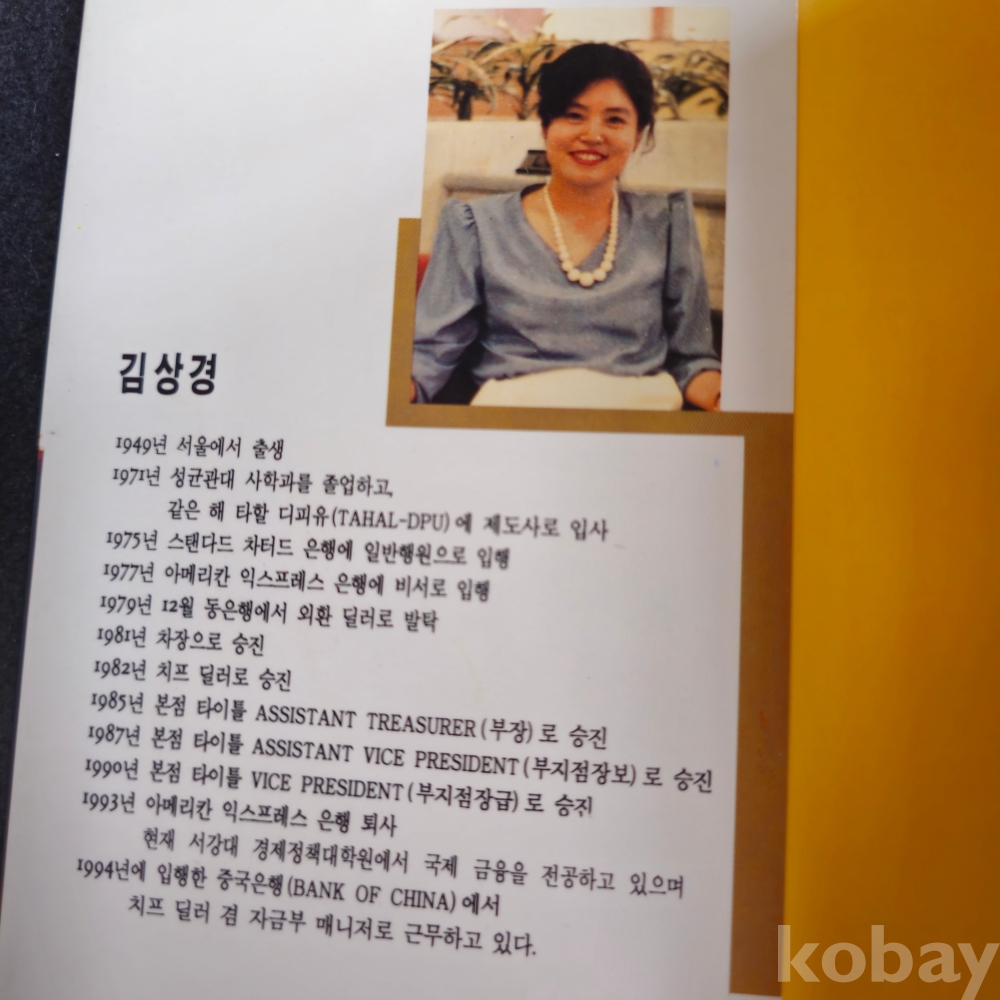 김상경
1949년 서울에서 출생
1971년 성균관대 사학과를 졸업하고,
같은 해 타할 디피유(TAHAL-DPU)에 제도사로 입사
1975년 스탠다드 차터드 은행에 일반행원으로 입행
1977년 아메리칸 익스프레스 은행에 비서로 입행
1979년 12월 동은행에서 외환 딜러로 발탁
1981년 차장으로 승진
1982년 치프 딜러로 승진
1985년 본점 타이틀 ASSISTANT TREASURER(부장)로 승진
1987년 본점 타이틀 ASSISTANT VICE PRESIDENT(부지점장보)로 승진
1990년 본점 타이틀 VICE PRESIDENT(부지점장급)로 승진
1993년 아메리칸 익스프레스 은행 퇴사
현재 서강대 경제정책대학원에서 국제 금융을 전공하고 있으며
1994년에 입행한 중국은행(BANK OF CHINA)에서
치프 딜러 겸 자금부 매니저로 근무하고 있다.
kobay